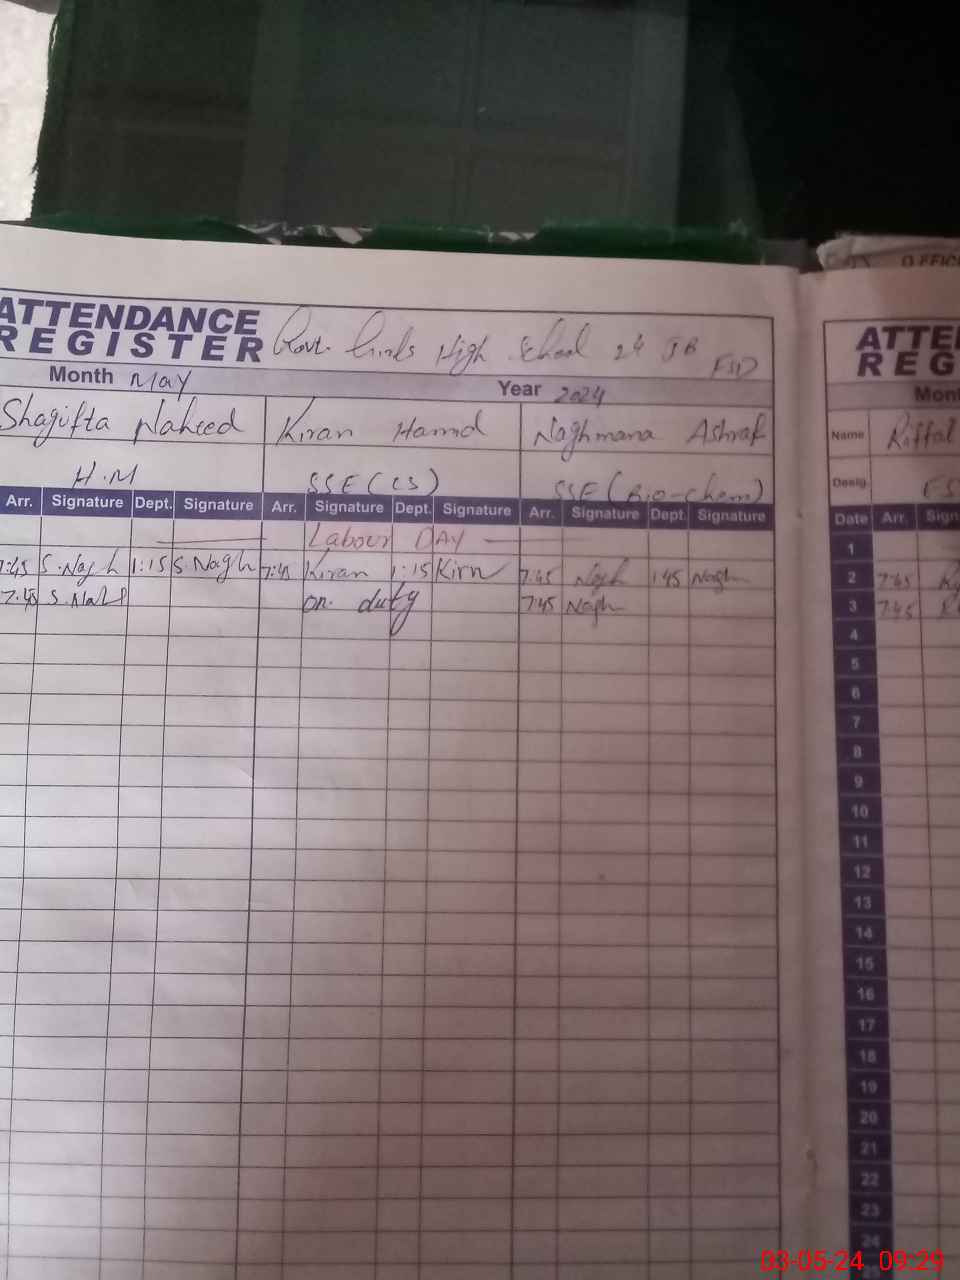 ATTENDANCE REGISTER Govt. Girls High School 24 JB FSD
Month May Year 2024
Shagufta Naheed Kiran Hamid Naghmana Ashraf
H.M SSE (CS) SSE (Bio-Chem)
Arr. Signature Dept. Signature Arr. Signature Dept. Signature Arr. Signature Dept. Signature
Labour DAY
7:45 S.Nagh 1:15 S.Nagh 7:45 Kiran 1:15 Kirn 7:45 Nagh 1:45 Nagh
7:45 on duty 7:45 Nagh
OFFICE
ATTE
REG
Mont
Name Riffat
Desig. ES
Date Arr. Sign
1
2 7:45
3 7:45
4
5
6
7
8
9
10
11
12
13
14
15
16
17
18
19
20
21
22
23
24
25
03-05-24 09:29